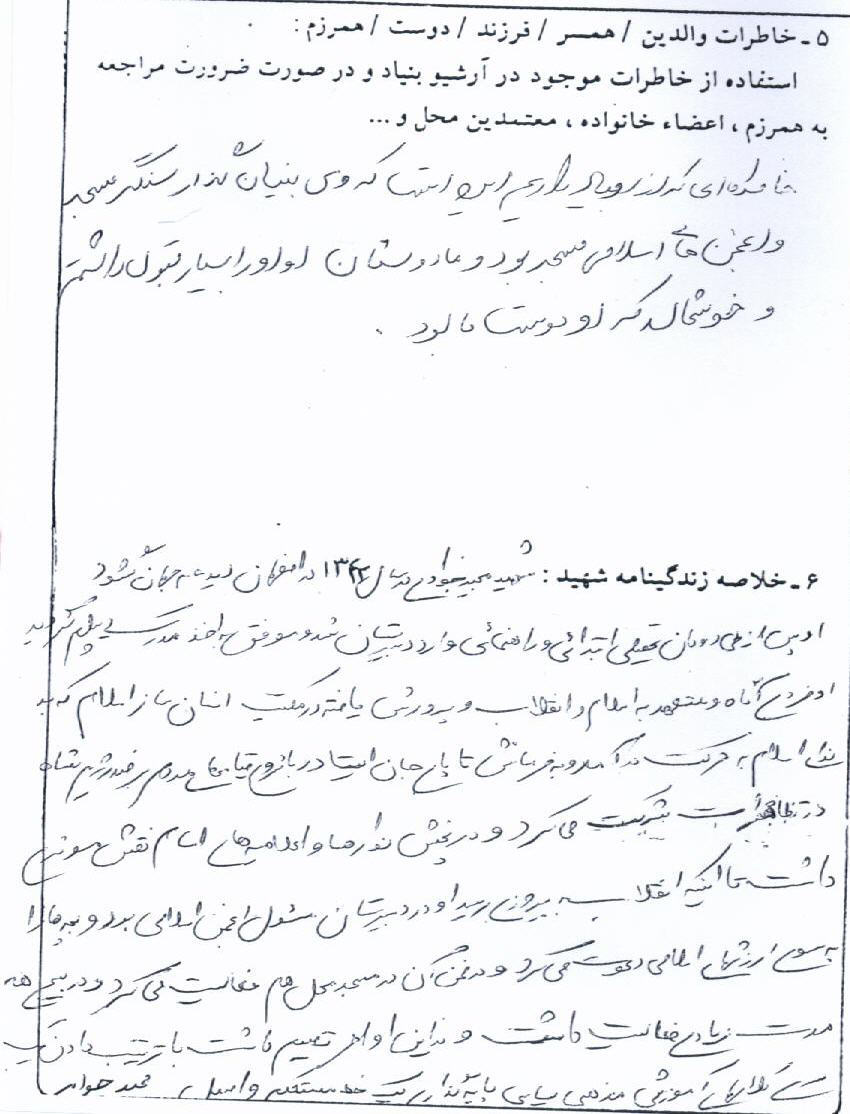 ۵ ـ خاطرات والدین / همسر / فرزند / دوست / همرزم :
استفاده از خاطرات موجود در آرشیو بنیاد و در صورت ضرورت مراجعه
به همرزم ، اعضاء خانواده ، معتمدین محل و ...
خاطره‌ای که از داریم این است که وی بنیان گذار سنگر مسجد
و انجمن های اسلامی مسجد بود و ما دوستان او او را بسیار قبول داشتیم
و خوشحالیم که او دوست ما بود .
۶ ـ خلاصه زندگینامه شهید : شهید مجید در سال ۱۳۴۲ در اصفهان دیده به جهان گشود
او پس از طی دوران تحصیلی ابتدائی و راهنمائی وارد دبیرستان شد و موفق به اخذ مدرک دیپلم گردید
او فردی آگاه و متعهد به اسلام و انقلاب و پرورش یافته در مکتب انسان ساز اسلام که به
ندای اسلام به حرکت در آمد و به فرمانش تا پای جان ایستاد در با شروع قیامهای مردم بر ضد رژیم شاه
در تظاهرات شرکت می کرد و در پخش نوارها و اعلامیه‌های امام نقش موثری
داشت تا اینکه انقلاب به پیروزی رسید او در دبیرستان مسئول انجمن اسلامی بود و بچه‌ها را
به سوی ارزشهای اسلامی دعوت می کرد و در ضمن آن در مسجد محل هم فعالیت می کرد و در بسیج هم
مدت زیادی فعالیت داشت و در این اواخر تصمیم داشت با ترتیب دادن یک
کلاسهای آموزشی مذهبی سیاسی پایه گذاری یک خط مستحکم و اصیل